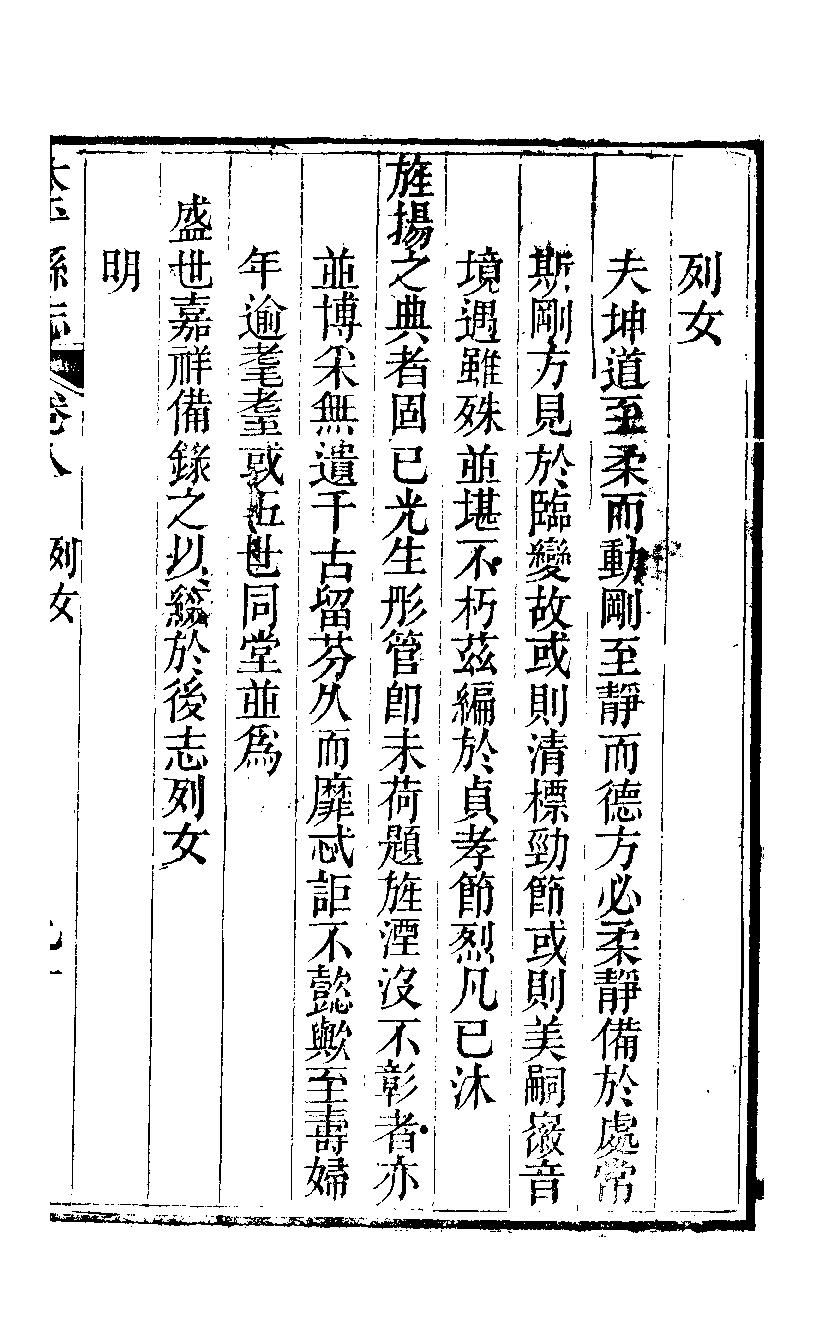 列女
夫坤道至柔而動剛至靜而德方必柔靜備於處常
斯剛方見於臨變故或則清標勁節或則美嗣徽音
境遇雖殊並堪不朽茲編於貞孝節烈凡已沐
旌揚之典者固已光生彤管卽未荷題旌湮沒不彰者亦
並博采無遺千古留芬久而靡忒詎不懿歟至壽婦
年逾耄耋或五世同堂並爲
盛世嘉祥備錄之以綴於後志列女
明
縣志 卷八 列女